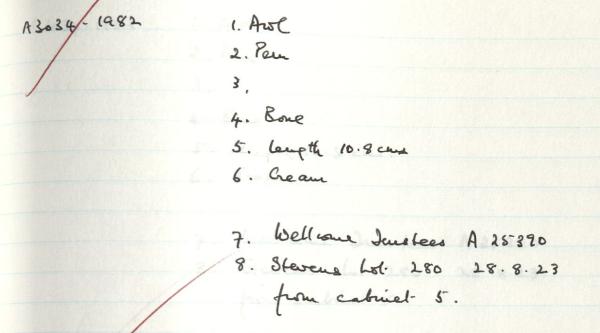 A3034-1982
1. Awl
2. Peru
3.
4. Bone
5. Length 10.8cms
6. Cream
7. Wellcome Trustees A 25390
8. Stevens Lot 280 28.8.23
from cabinet 5.